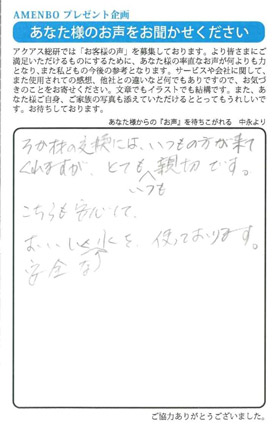 AMENBO プレゼント企画
あなた様のお声をお聞かせください
アクアス総研では「お客様の声」を募集しております。より皆さまにご
満足いただけるものにするために、あなた様の率直なお声が何よりも力
となり、また私どもの今後の参考となります。サービスや会社に関して、
また使用されての感想、他社との違いなど何でもありですので、お気づ
きのことをお寄せください。文章でもイラストでも結構です。また、あ
なた様ご自身、ご家族の写真も添えていただけるととってもうれしいで
す。お待ちしております。
あなた様からの『お声』を待ちこがれる 中永より
ろか材の交換には、いつもの方が来て
くれますが、とても親切です。
いつも
こちらも安心して、
おいしく水を、使っております。
安全な
ご協力ありがとうございました。